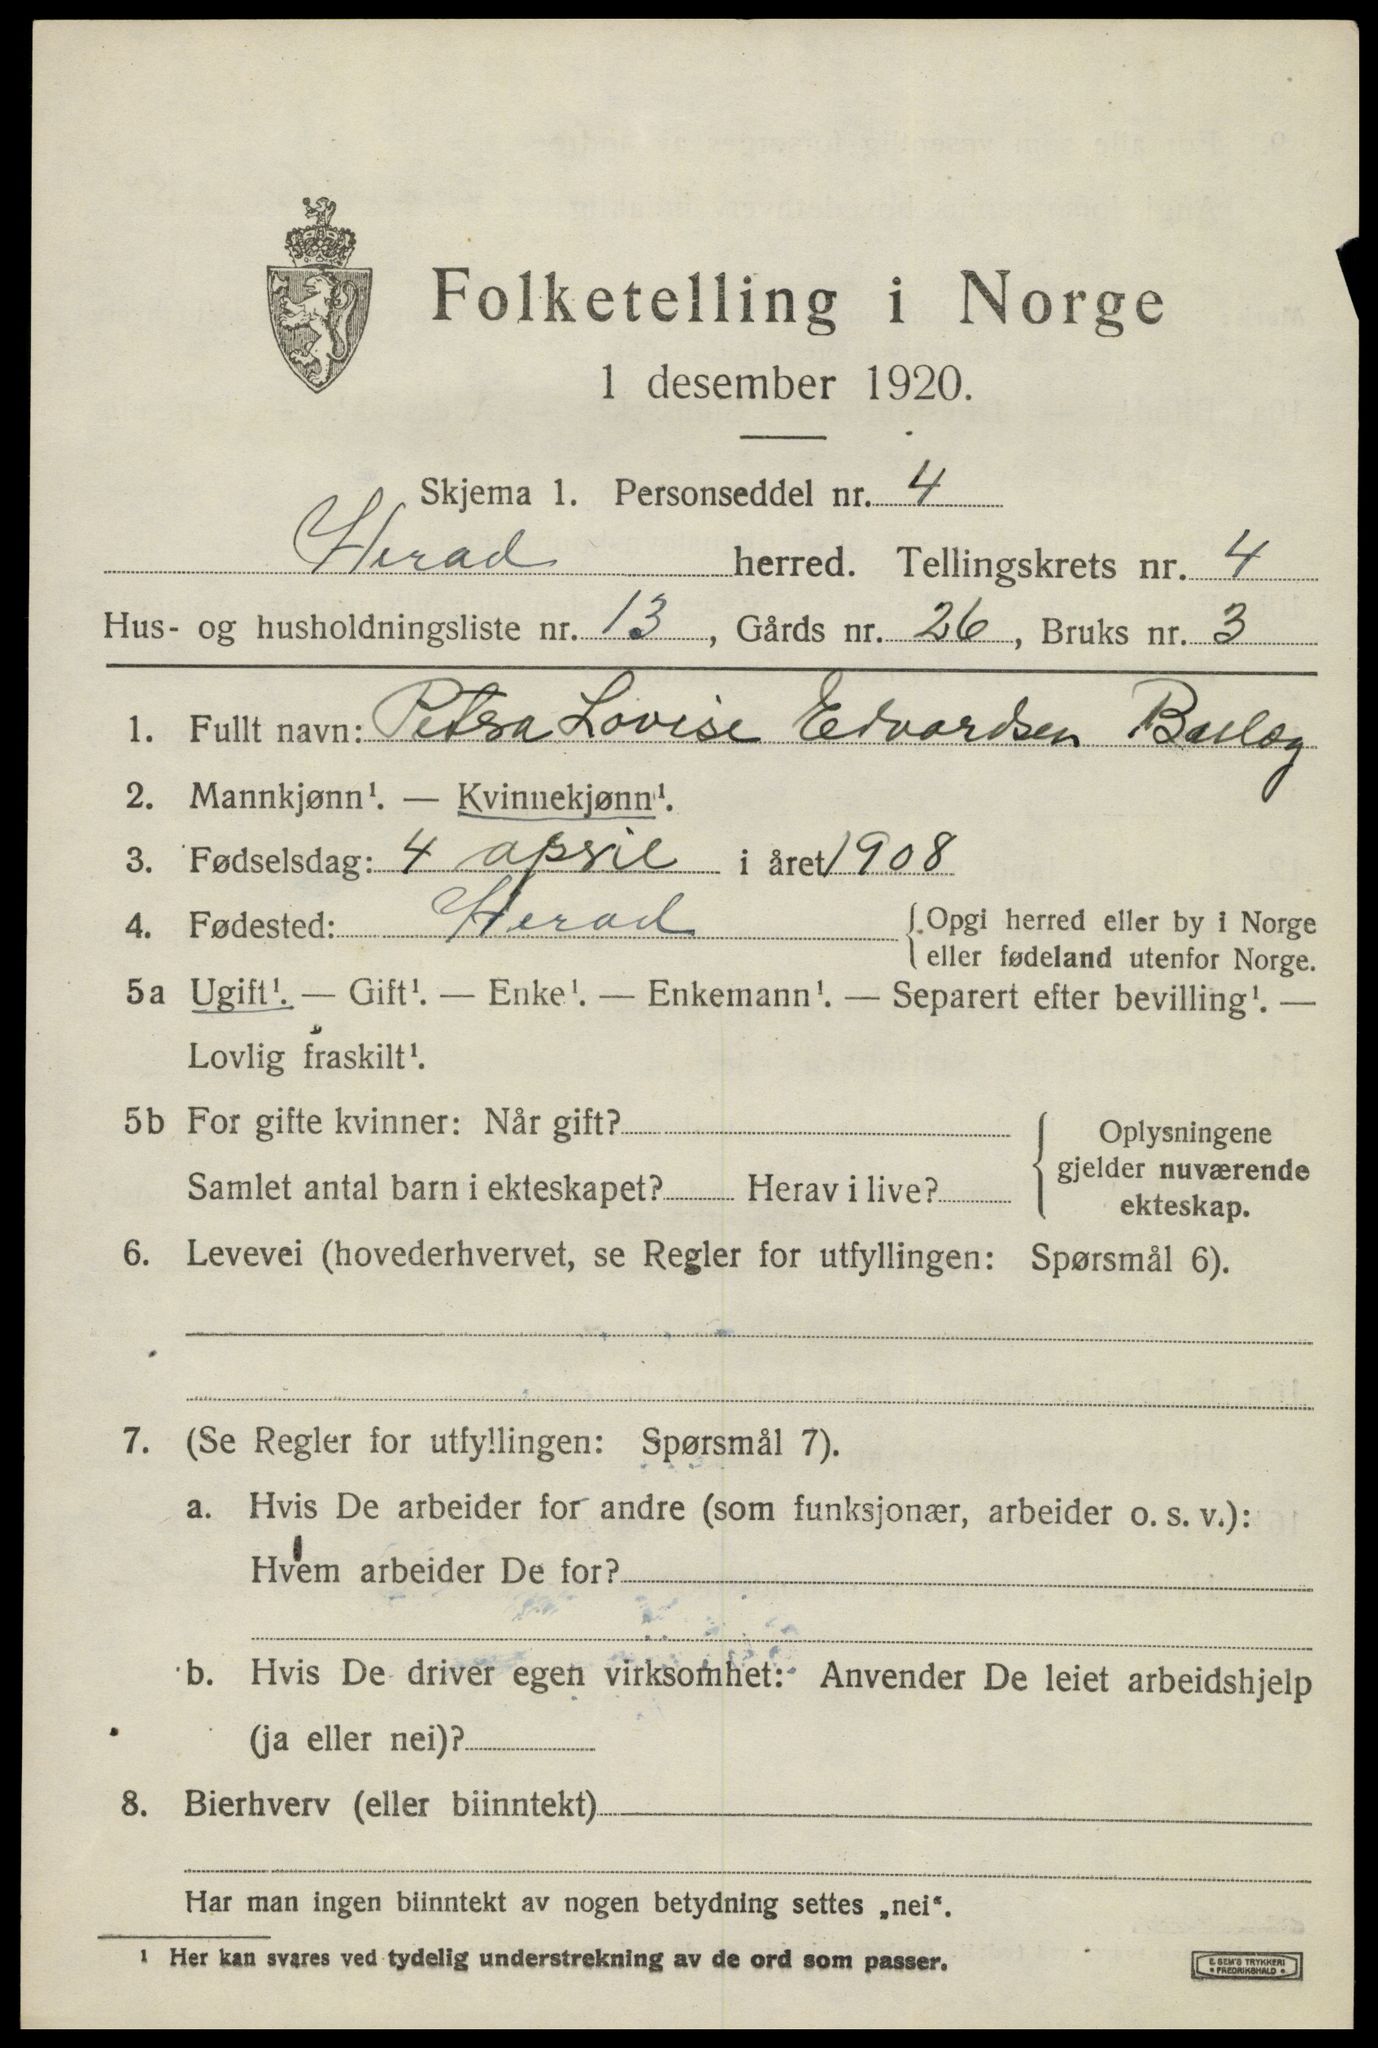 Folketelling i Norge
1 desember 1920.
Skjema 1. Personseddel nr. 4
Herad herred. Tellingskrets nr. 4
Hus- og husholdningsliste nr. 13, Gårds nr. 26, Bruks nr. 3
1. Fullt navn: Petra Lovise Edvardsen
2. Mannkjønn¹. — Kvinnekjønn¹.
3. Fødselsdag: 4 april i året 1908
4. Fødested: Herad {Opgi herred eller by i Norge
eller fødeland utenfor Norge.
5a Ugift¹. — Gift¹. — Enke¹. — Enkemann¹. — Separert efter bevilling¹. —
Lovlig fraskilt¹.
5b For gifte kvinner: Når gift?
Samlet antal barn i ekteskapet? Herav i live?
Oplysningene
gjelder nuværende
ekteskap.
6. Levevei (hovederhvervet, se Regler for utfyllingen: Spørsmål 6).
7. (Se Regler for utfyllingen: Spørsmål 7).
a. Hvis De arbeider for andre (som funksjonær, arbeider o. s. v.):
Hvem arbeider De for?
b. Hvis De driver egen virksomhet: Anvender De leiet arbeidshjelp
(ja eller nei)?
8. Bierhverv (eller biinntekt)
Har man ingen biinntekt av nogen betydning settes „nei“.
¹ Her kan svares ved tydelig understrekning av de ord som passer.
E. SEM'S TRYKKERI
• FREDRIKSHALD •